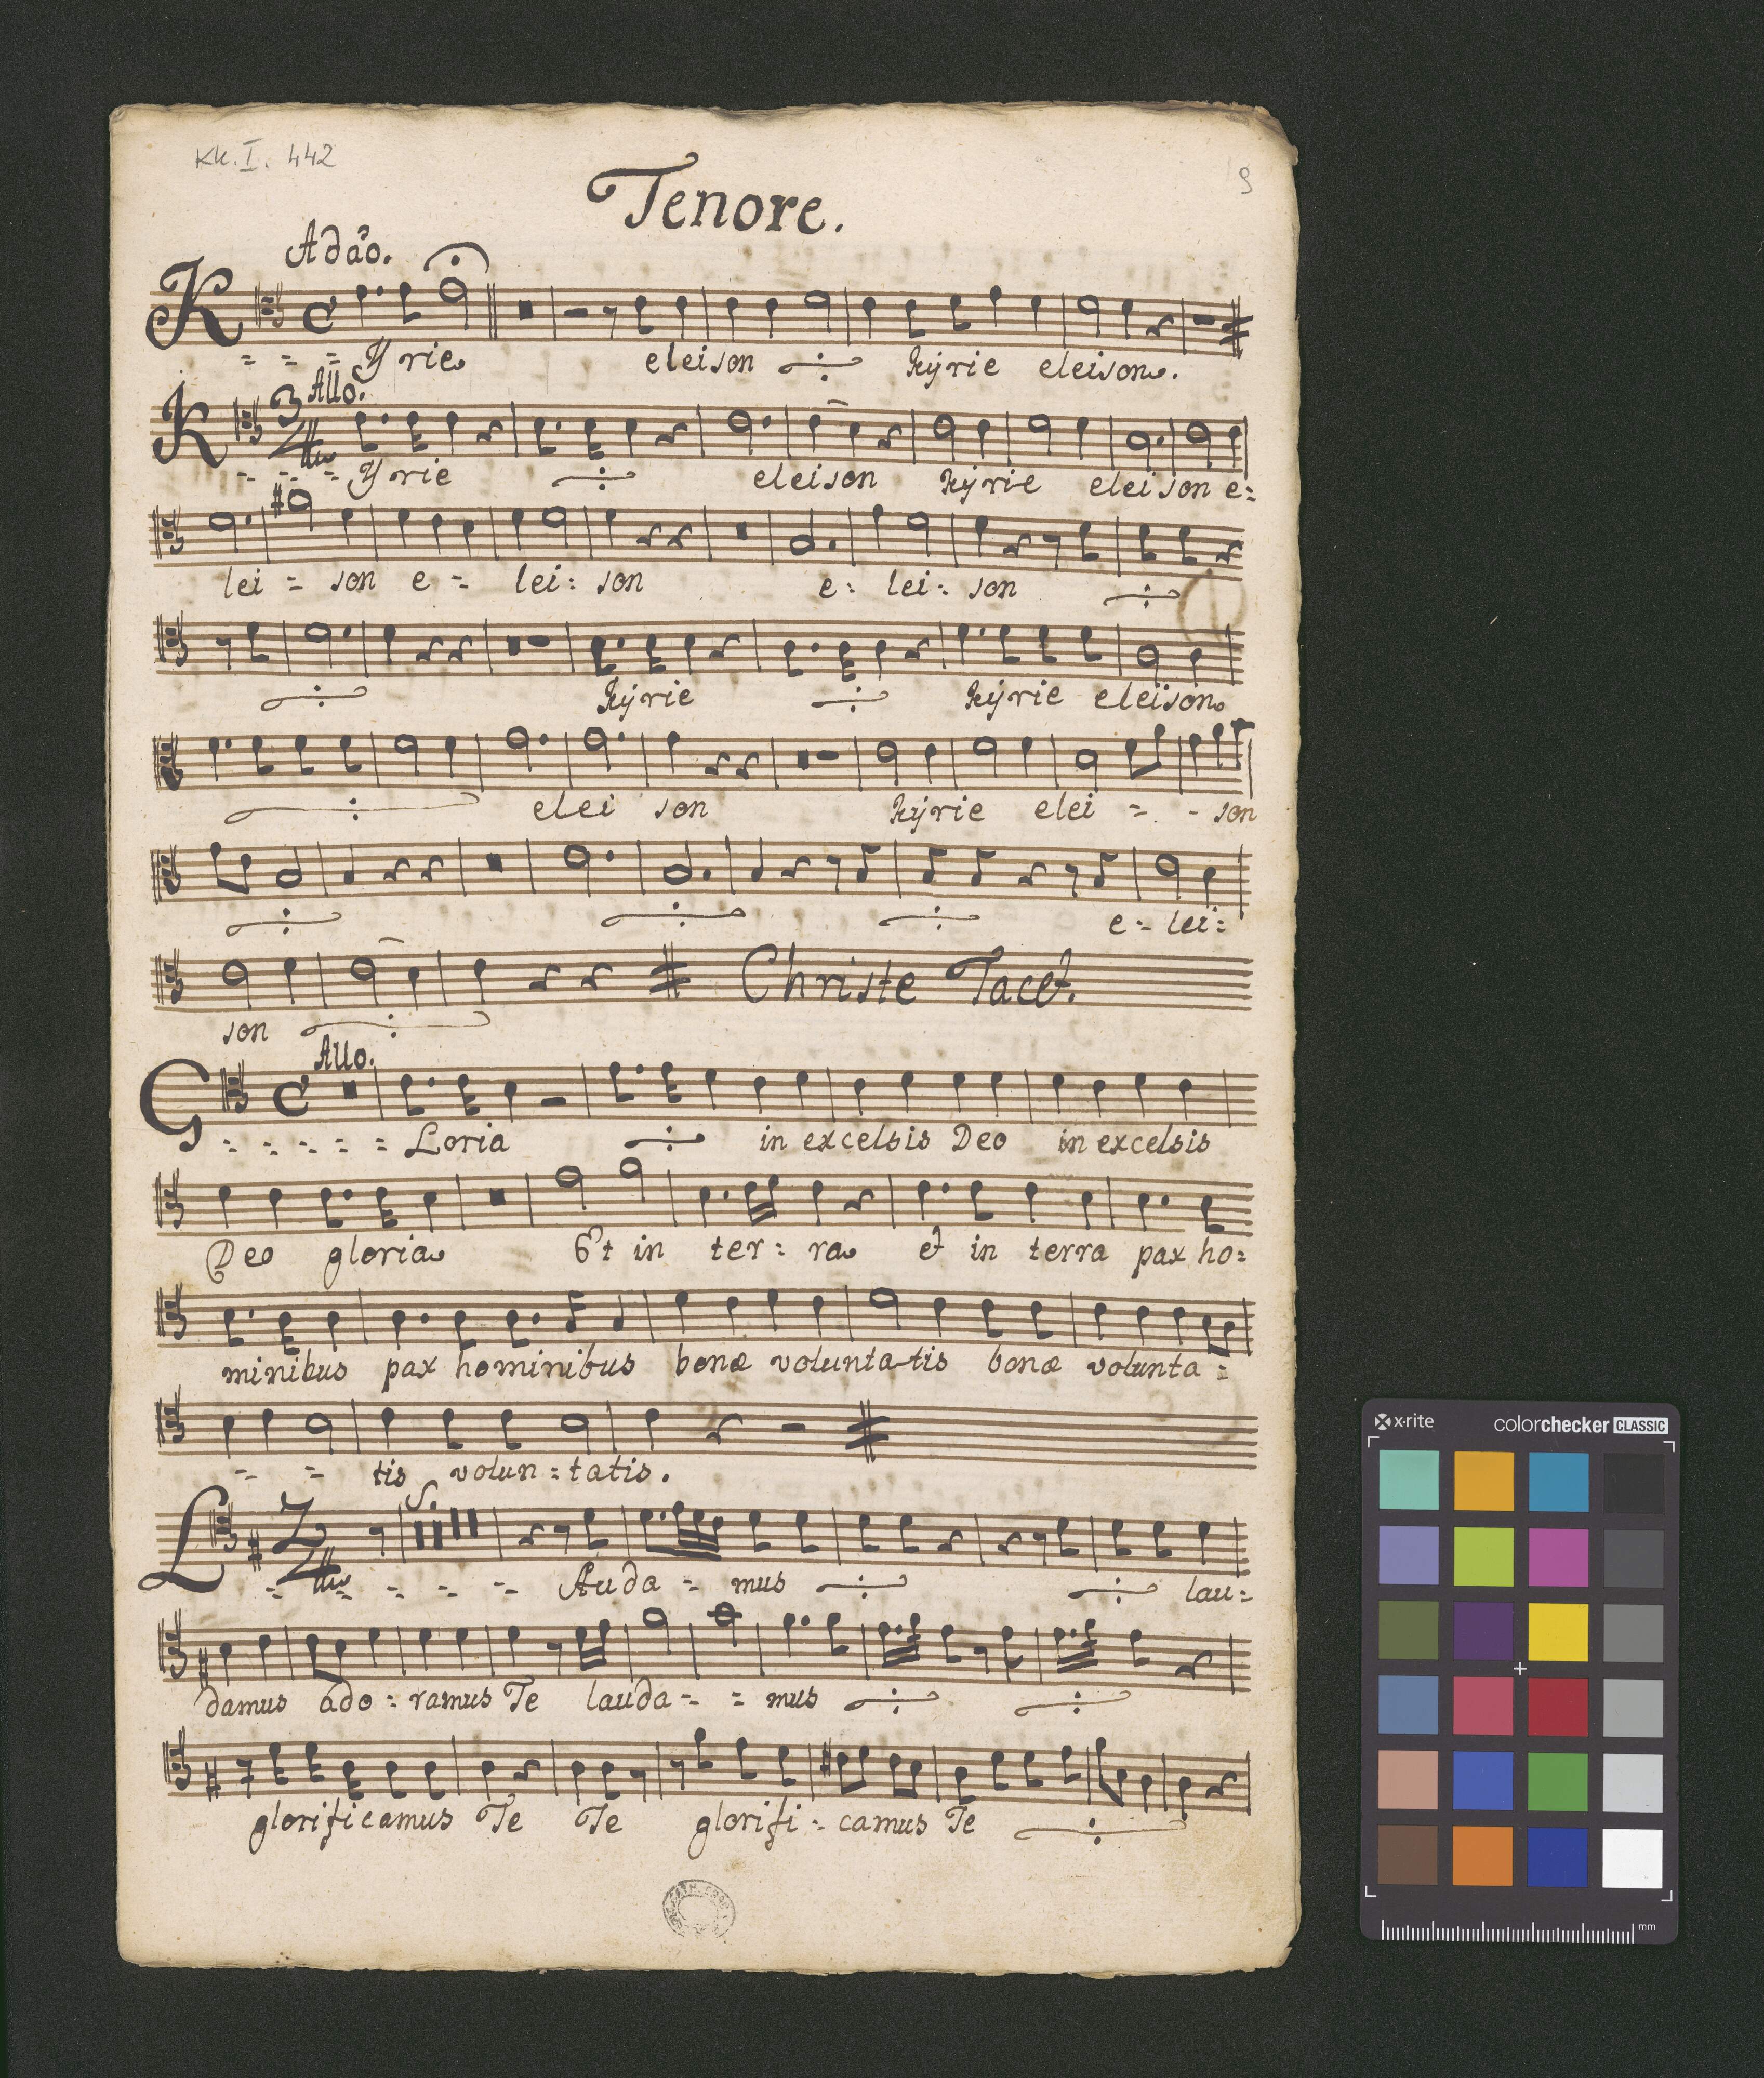 KK. I. 442
9
Tenore.
Adạo.
K - - - Yrie eleison kyrie eleison.
Allo.
3/4
K - - - Yrie eleison kyrie eleison e=
lei = son e = lei = son e = lei = son
kyrie kyrie eleison.
elei son kyrie elei = - son
e = lei =
son Christe Tacet.
Allo.
G - - - - = Loria in excelsis Deo in excelsis
Deo gloria Et in ter = ra et in terra pax ho=
minibus pax hominibus bonæ voluntatis bonæ volunta =
- = tis volun = tatis.
S.
2/4
L - - - - - Auda = mus lau=
damus ado = ramus Te lauda = = mus
glorificamus Te Te glorifi = camus Te
x·rite colorchecker CLASSIC
mm